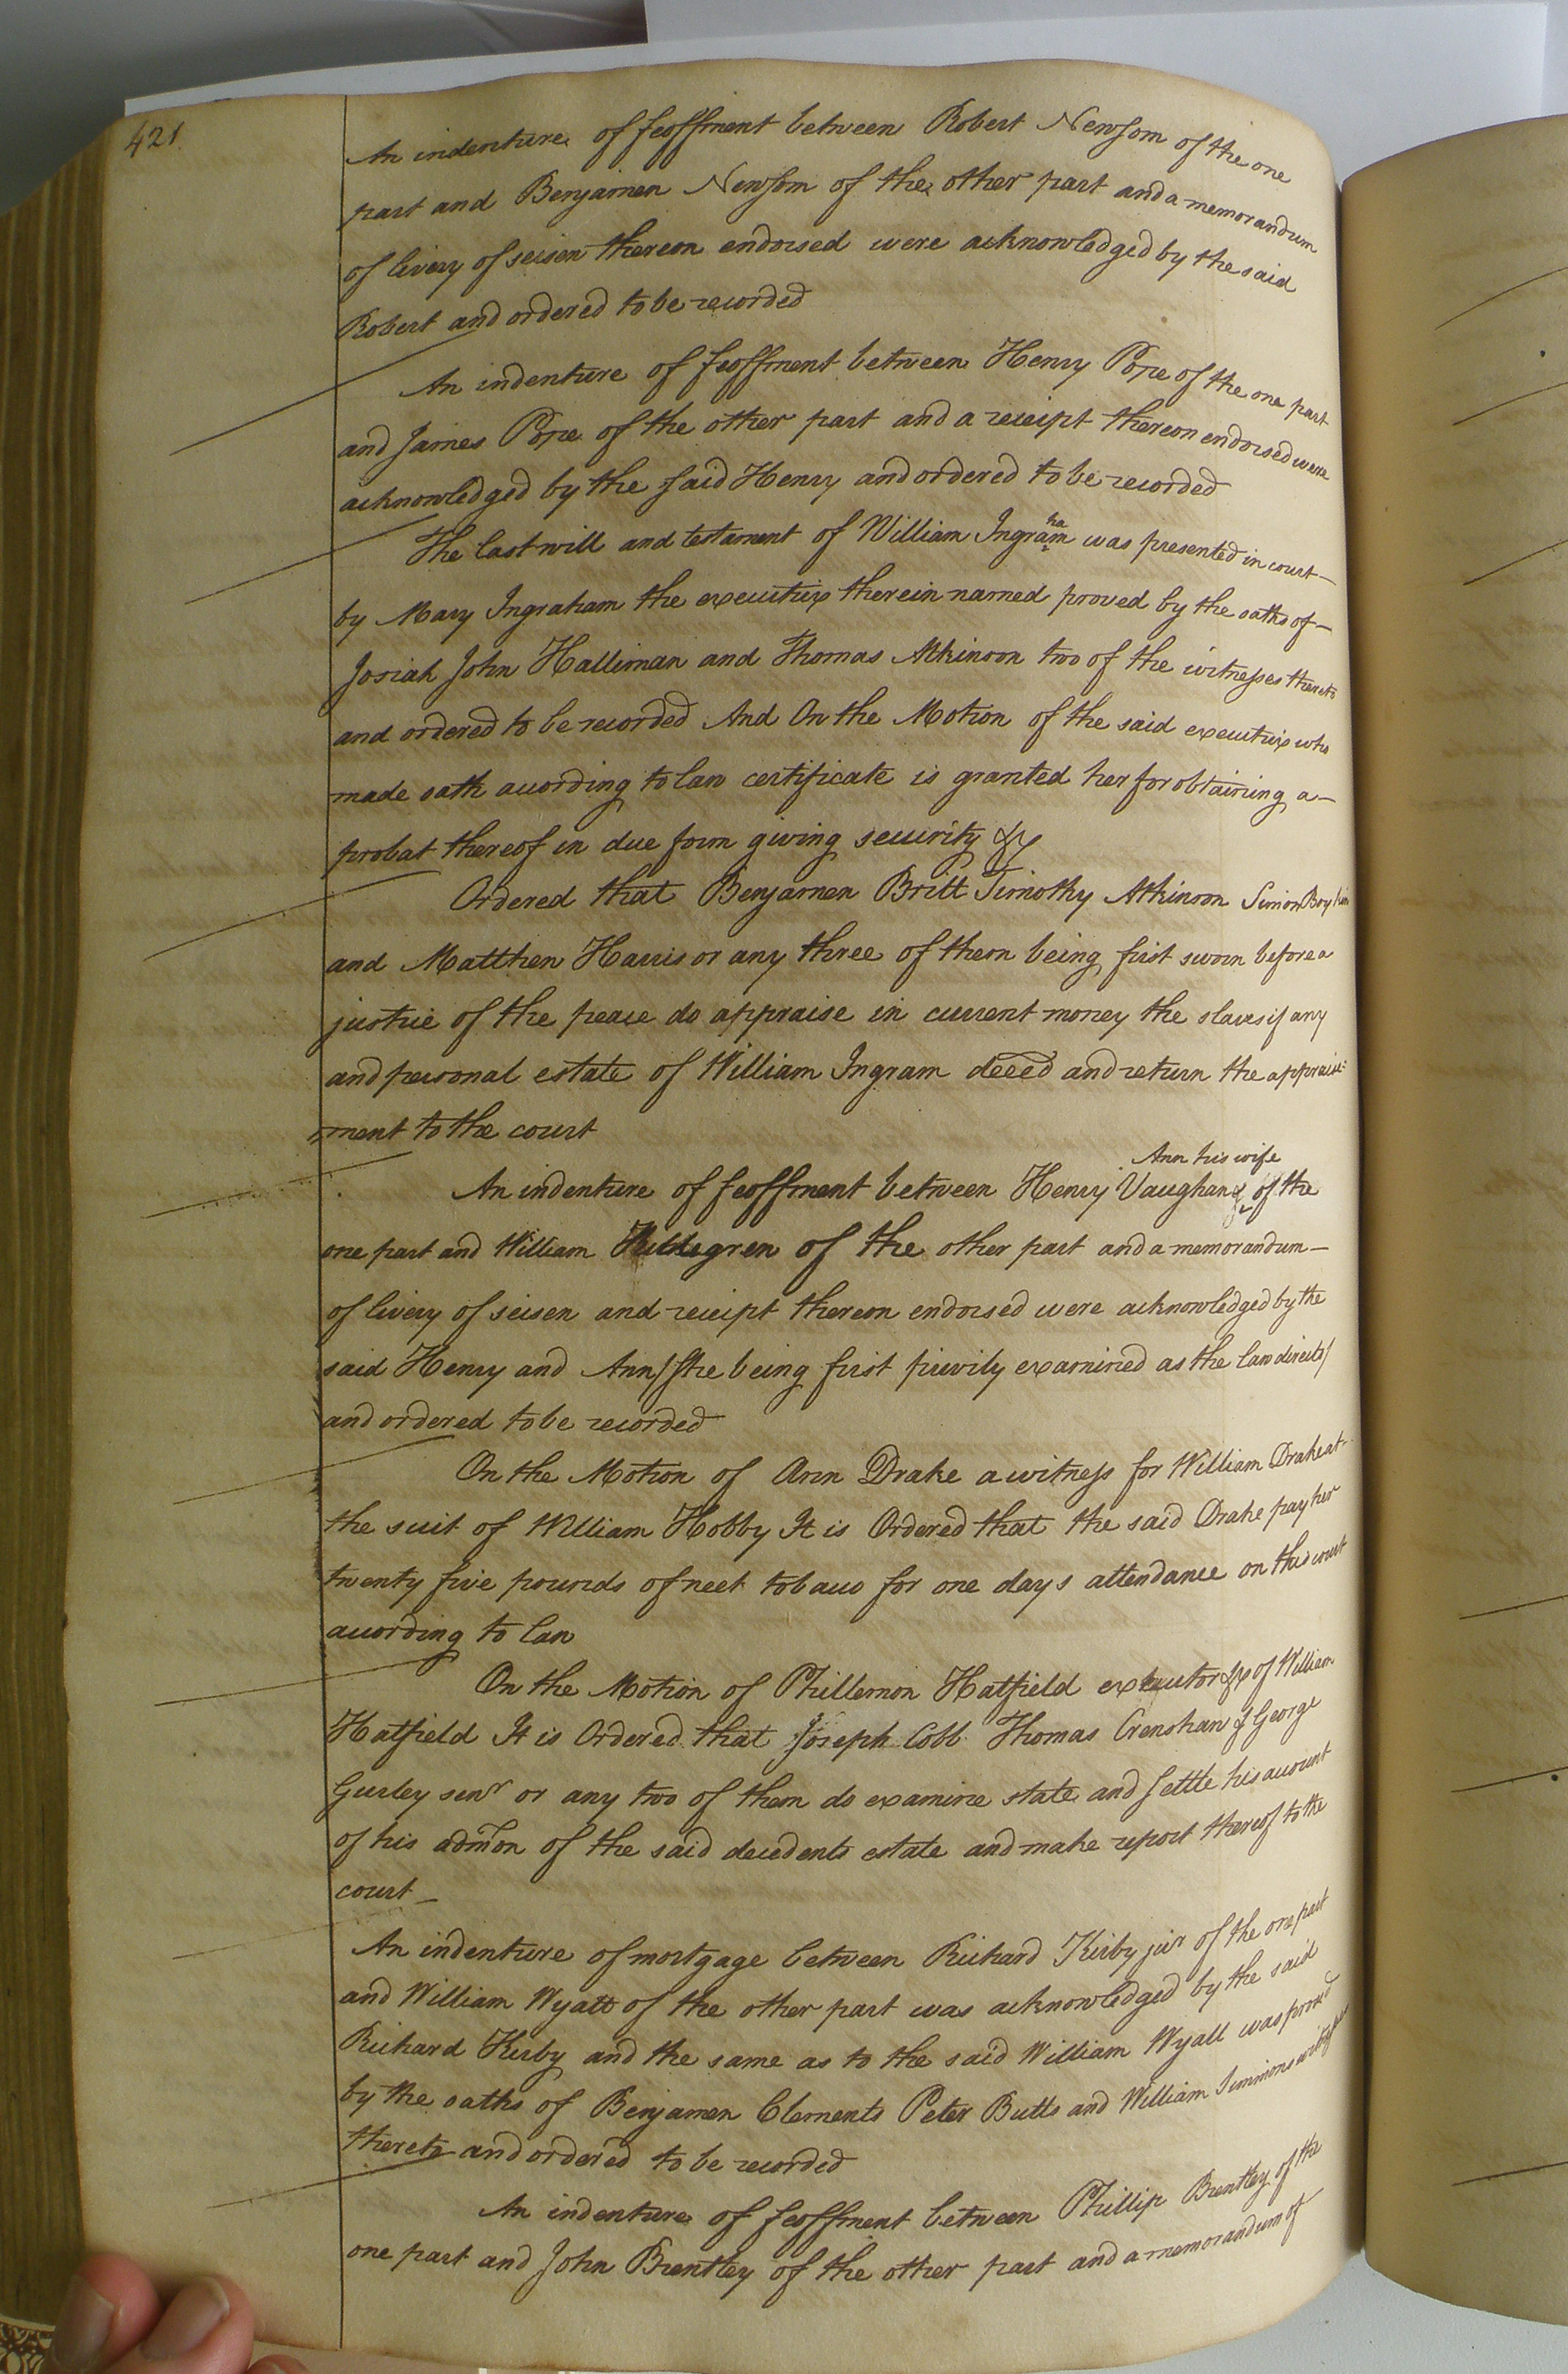 421
An indenture of feoffment between Robert Newsom of the one
part and Benjamen Newsom of the other part and a memorandum
of livery of seisen thereon endorsed were acknowledged by the said
Robert and ordered to be recorded
An indenture of feoffment between Henry Pope of the one part
and James Pope of the other part and a receipt thereon endorsed were
acknowledged by the said Henry and ordered to be recorded
The last will and testament of William Ingraham was presented in court
by Mary Ingraham the executrix therein named proved by the oaths of
Josiah John Halliman and Thomas Atkinson two of the witnesses thereto
and ordered to be recorded And On the Motion of the said executrix who
made oath according to law certificate is granted her for obtaining a
probat thereof in due form giving security &c
Ordered that Benjamen Britt Timothy Atkinson Simon
and Matthew Harris or any three of them being first sworn before a
justice of the peace do appraise in current money the slaves if any
and personal estate of William Ingram deced and return the appraise
ment to the court
Ann his wife
An indenture of feoffment between Henry Vaughan & of the
one part and William of the other part and a memorandum
of livery of seisen and receipt thereon endorsed were acknowledged by the
said Henry and Ann /she being first privily examined as the law directs/
and ordered to be recorded
On the Motion of Ann Drake a witness for William Drake at
the suit of William Hobby It is Ordered that the said Drake pay her
twenty five pounds of neet tobacco for one days attendance on this court
according to law
On the Motion of Phillemon Hatfield executor &c of William
Hatfield It is Ordered that Joseph Cobb Thomas Crenshaw & George
Gurley senr or any two of them do examine state and settle his account
of his admon of the said decedents estate and make report thereof to the
court
An indenture of mortgage between Richard Kirby junr of the one part
and William Wyatt of the other part was acknowledged by the said
Richard Kirby and the same as to the said William Wyall was proved
by the oaths of Benjamen Clements Peter Butts and William Simmons witnesses
thereto and ordered to be recorded
An indenture of feoffment between Phillip Brantley of the
one part and John Brantley of the other part and a memorandum of